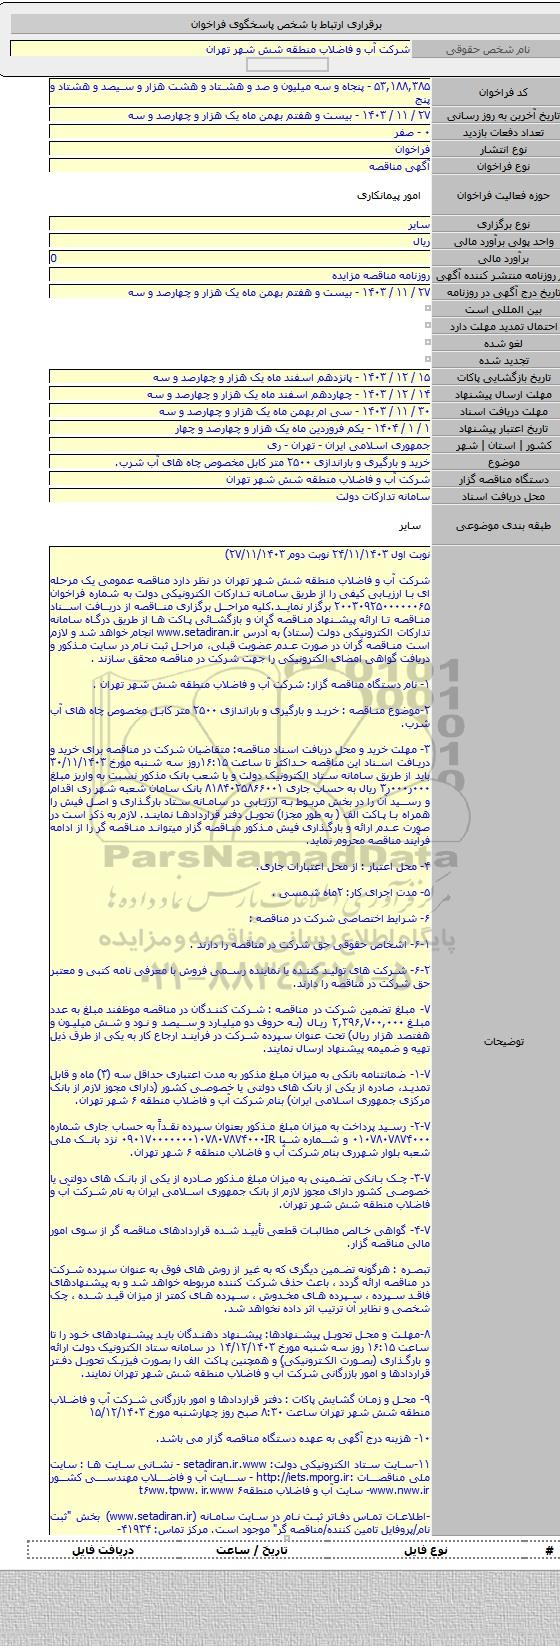 برقراری ارتباط با شخص پاسخگوی فراخوان
نام شخص حقوقی شرکت آب و فاضلاب منطقه شش شهر تهران
کد فراخوان ۵۳,۱۸۸,۳۸۵ - پنجاه و سه میلیون و صد و هشتاد و هشت هزار و سیصد و هشتاد و پنج
تاریخ آخرین به روز رسانی ۲۷ / ۱۱ / ۱۴۰۳ - بیست و هفتم بهمن ماه یک هزار و چهارصد و سه
تعداد دفعات بازدید ۰ - صفر
نوع انتشار فراخوان
نوع فراخوان آگهی مناقصه
حوزه فعالیت فراخوان امور پیمانکاری
نوع برگزاری سایر
واحد پولی برآورد مالی ریال
برآورد مالی 0
روزنامه منتشر کننده آگهی روزنامه مناقصه مزایده
تاریخ درج آگهی در روزنامه ۲۷ / ۱۱ / ۱۴۰۳ - بیست و هفتم بهمن ماه یک هزار و چهارصد و سه
بین المللی است
احتمال تمدید مهلت دارد
لغو شده
تجدید شده
تاریخ بازگشایی پاکات ۱۵ / ۱۲ / ۱۴۰۳ - پانزدهم اسفند ماه یک هزار و چهارصد و سه
مهلت ارسال پیشنهاد ۱۴ / ۱۲ / ۱۴۰۳ - چهاردهم اسفند ماه یک هزار و چهارصد و سه
مهلت دریافت اسناد ۳۰ / ۱۱ / ۱۴۰۳ - سی ام بهمن ماه یک هزار و چهارصد و سه
تاریخ اعتبار پیشنهاد ۱ / ۱ / ۱۴۰۴ - یکم فروردین ماه یک هزار و چهارصد و چهار
کشور | استان | شهر جمهوری اسلامی ایران - تهران - ری
موضوع خرید و بارگیری و باراندازی ۲۵۰۰ متر کابل مخصوص چاه های آب شرب.
دستگاه مناقصه گزار شرکت آب و فاضلاب منطقه شش شهر تهران
محل دریافت اسناد سامانه تدارکات دولت
طبقه بندی موضوعی سایر
توضیحات
نوبت اول ۲۴/۱۱/۱۴۰۳ نوبت دوم ۲۷/۱۱/۱۴۰۳)
شرکت آب و فاضلاب منطقه شش شهر تهران در نظر دارد مناقصه عمومی یک مرحله
ای با ارزیابی کیفی را از طریق سامانه تدارکات الکترونیکی دولت به شماره فراخوان
۲۰۰۳۰۹۲۵۰۰۰۰۰۰۶۵ برگزار نماید.کلیه مراحل برگزاری مناقصه از دریافت اسناد
مناقصه تا ارائه پیشنهاد مناقصه گران و بازگشائی پاکت ها از طریق درگاه سامانه
تدارکات الکترونیکی دولت (ستاد) به آدرس www.setadiran.ir انجام خواهد شد و لازم
است مناقصه گران در صورت عدم عضویت قبلی، مراحل ثبت نام در سایت مذکور و
دریافت گواهی امضای الکترونیکی را جهت شرکت در مناقصه محقق سازند .
۱- نام دستگاه مناقصه گزار: شرکت آب و فاضلاب منطقه شش شهر تهران .
۲-موضوع مناقصه : خرید و بارگیری و باراندازی ۲۵۰۰ متر کابل مخصوص چاه های آب
شرب.
۳- مهلت خرید و محل دریافت اسناد مناقصه: متقاضیان شرکت در مناقصه برای خرید و
دریافت اسناد این مناقصه حداکثر تا ساعت ۱۶:۱۵روز سه شنبه مورخ ۳۰/۱۱/۱۴۰۳
باید از طریق سامانه ستاد الکترونیک دولت و یا شعب بانک مذکور نسبت به واریز مبلغ
۳٫۰۰۰٫۰۰۰ ریال به حساب جاری ۸۱۸۴۰۲۵۸۶۶۰۰۱ بانک سامان شعبه شهر ری اقدام
و رسید آن را در بخش مربوط به ارزیابی در سامانه ستاد بارگذاری و اصل فیش را
همراه با پاکت الف ( به طور مجزا) تحویل دفتر قراردادها نمایند. لازم به ذکر است در
صورت عدم ارائه و بارگذاری فیش مذکور مناقصه گزار میتواند مناقصه گر را از ادامه
فرآیند مناقصه محروم نماید.
۴- محل اعتبار : از محل اعتبارات جاری.
۵- مدت اجرای کار: ۲ماه شمسی .
۶- شرایط اختصاصی شرکت در مناقصه :
۶-۱- اشخاص حقوقی حق شرکت در مناقصه را دارند .
۶-۲- شرکت های تولید کننده یا نماینده رسمی فروش با معرفی نامه کتبی و معتبر
حق شرکت در مناقصه را دارند.
۷- مبلغ تضمین شرکت در مناقصه : شرکت کنندگان در مناقصه موظفند مبلغ به عدد
مبلغ ۲,۳۹۶,۷۰۰,۰۰۰ ریال (به حروف دو میلیارد و سیصد و نود و شش میلیون و
هفتصد هزار ریال) تحت عنوان سپرده شرکت در فرآیند ارجاع کار به یکی از طرق ذیل
تهیه و ضمیمه پیشنهاد ارسال نمایند.
۷-۱- ضمانتنامه بانکی به میزان مبلغ مذکور به مدت اعتباری حداقل سه (۳) ماه و قابل
تمدید، صادره از یکی از بانک های دولتی یا خصوصی کشور (دارای مجوز لازم از بانک
مرکزی جمهوری اسلامی ایران) بنام شرکت آب و فاضلاب منطقه ۶ شهر تهران.
۷-۲- رسید پرداخت به میزان مبلغ مذکور بعنوان سپرده نقداً به حساب جاری شماره
۰۱۰۷۸۰۷۸۷۴۰۰۰ و شماره شبا ۰۹۰۱۷۰۰۰۰۰۰۰۱۰۷۸۰۷۸۷۴۰۰۰IR نزد بانک ملی
شعبه بلوار شهرری بنام شرکت آب و فاضلاب منطقه ۶ شهر تهران.
۷-۳- چک بانکی تضمینی به میزان مبلغ مذکور صادره از یکی از بانک های دولتی یا
خصوصی کشور دارای مجوز لازم از بانک جمهوری اسلامی ایران به نام شرکت آب و
فاضلاب منطقه شش شهر تهران.
۷-۴- گواهی خالص مطالبات قطعی تأیید شده قراردادهای مناقصه گر از سوی امور
مالی مناقصه گزار.
تبصره : هرگونه تضمین دیگری که به غیر از روش های فوق به عنوان سپرده شرکت
در مناقصه ارائه گردد ، باعث حذف شرکت کننده مربوطه خواهد شد و به پیشنهادهای
فاقد سپرده ، سپرده های مخدوش ، سپرده های کمتر از میزان قید شده ، چک
شخصی و نظایر آن ترتیب اثر داده نخواهد شد.
۸-مهلت و محل تحویل پیشنهادها: پیشنهاد دهندگان باید پیشنهادهای خود را تا
ساعت ۱۶:۱۵ روز سه شنبه مورخ ۱۴/۱۲/۱۴۰۳ در سامانه ستاد الکترونیک دولت ارائه
و بارگذاری (بصورت الکترونیکی) و همچنین پاکت الف را بصورت فیزیک تحویل دفتر
قراردادها و امور بازرگانی شرکت آب و فاضلاب منطقه شش شهر تهران نمایند.
۹- محل و زمان گشایش پاکات : دفتر قراردادها و امور بازرگانی شرکت آب و فاضلاب
منطقه شش شهر تهران ساعت ۸:۳۰ صبح روز چهارشنبه مورخ ۱۵/۱۲/۱۴۰۳
۱۰- هزینه درج آگهی به عهده دستگاه مناقصه گزار می باشد.
۱۱-سایت ستاد الکترونیکی دولت: setadiran.ir.www - نشانی سایت ها : سایت
ملی مناقصات :http://iets.mporg.ir - سایت آب و فاضلاب مهندسی کشور
www.nww.ir- سایت آب و فاضلاب منطقه۶ t۶ww.tpww. ir.www
-اطلاعات تماس دفاتر ثبت نام در سایت سامانه (www.setadiran.ir) بخش "ثبت
نام/پروفایل تامین کننده/مناقصه گر" موجود است. مرکز تماس: ۴۱۹۳۴-
# نوع فایل تاریخ / ساعت دریافت فایل
ParsNamadData
مرکز فرآوری اطلاعات پارس نماد داده ها
پایگاه اطلاع رسانی مناقصه و مزایده
۰۲۱-۸۸۳۴۹۶۷۰-۵